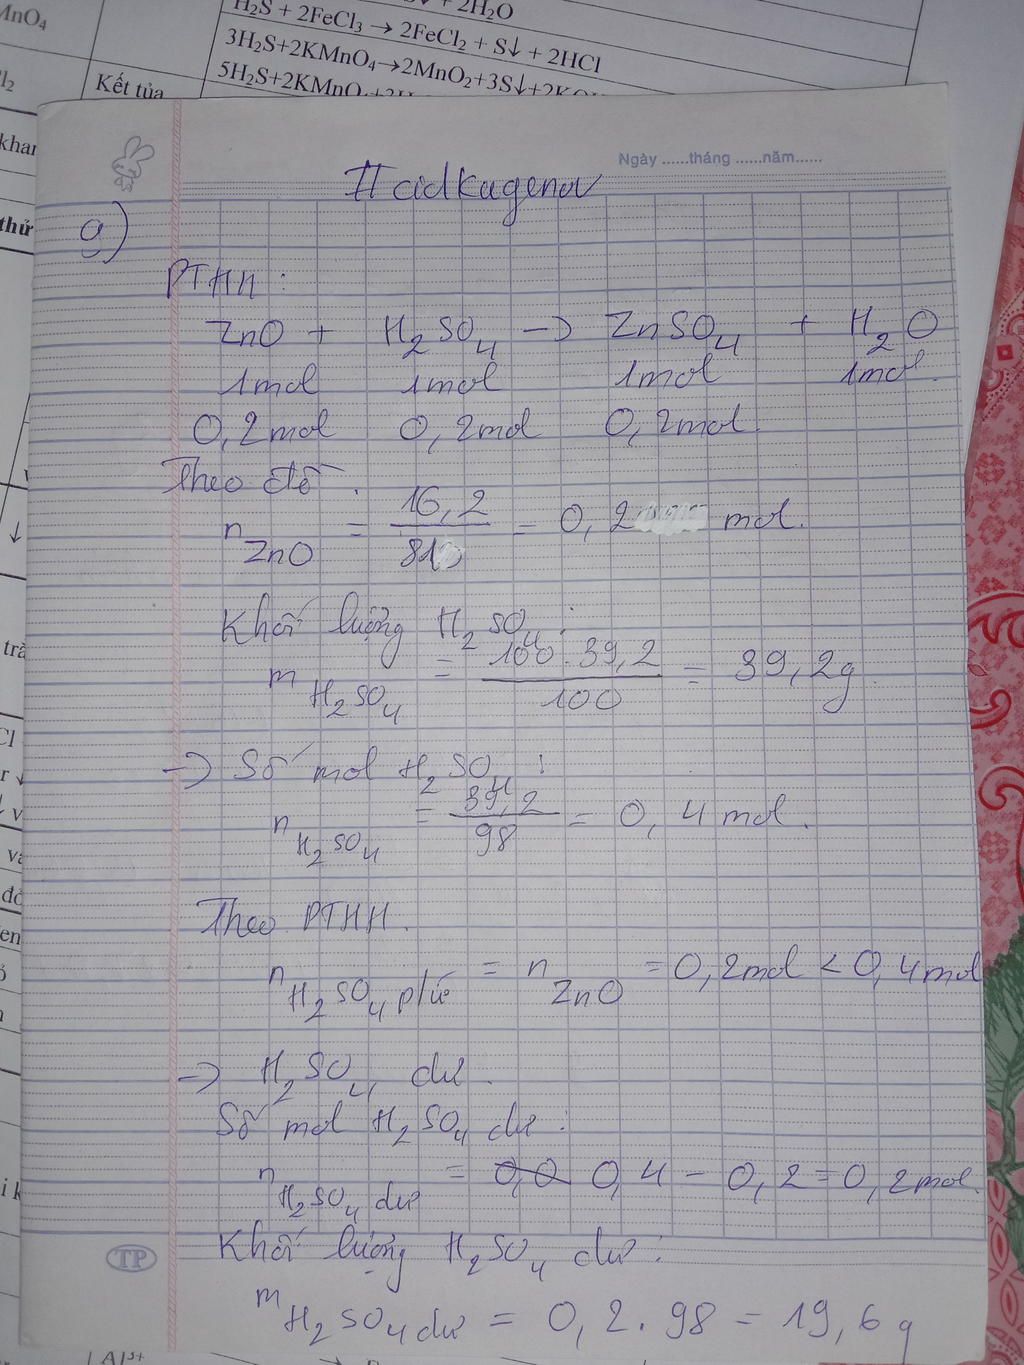 MnO₄
+ 2H₂O
H₂S + 2FeCl₃ → 2FeCl₂ + S↓ + 2HCl
3H₂S+2KMnO₄→2MnO₂+3S↓+2KOH
Kết tủa
5H₂S+2KMnO₄
thử
Ngày ......tháng ......năm......
#cidkagenou
a)
PTHH :
ZnO + H₂SO₄ → ZnSO₄ + H₂O
1mol 1mol 1mol 1mol
0,2mol 0,2mol 0,2mol
Theo đề :
n ZnO = 16,2 / 81 = 0,2 mol.
Khối lượng H₂SO₄ :
m H₂SO₄ = 100 . 39,2 / 100 = 39,2g
→ Số mol H₂SO₄ :
n H₂SO₄ = 39,2 / 98 = 0,4 mol.
Theo PTHH.
n H₂SO₄ p/ứ = n ZnO = 0,2mol < 0,4mol
→ H₂SO₄ dư.
Số mol H₂SO₄ dư :
n H₂SO₄ dư = 0,4 - 0,2 = 0,2mol.
Khối lượng H₂SO₄ dư :
m H₂SO₄ dư = 0,2 . 98 = 19,6g
TP
Al³⁺